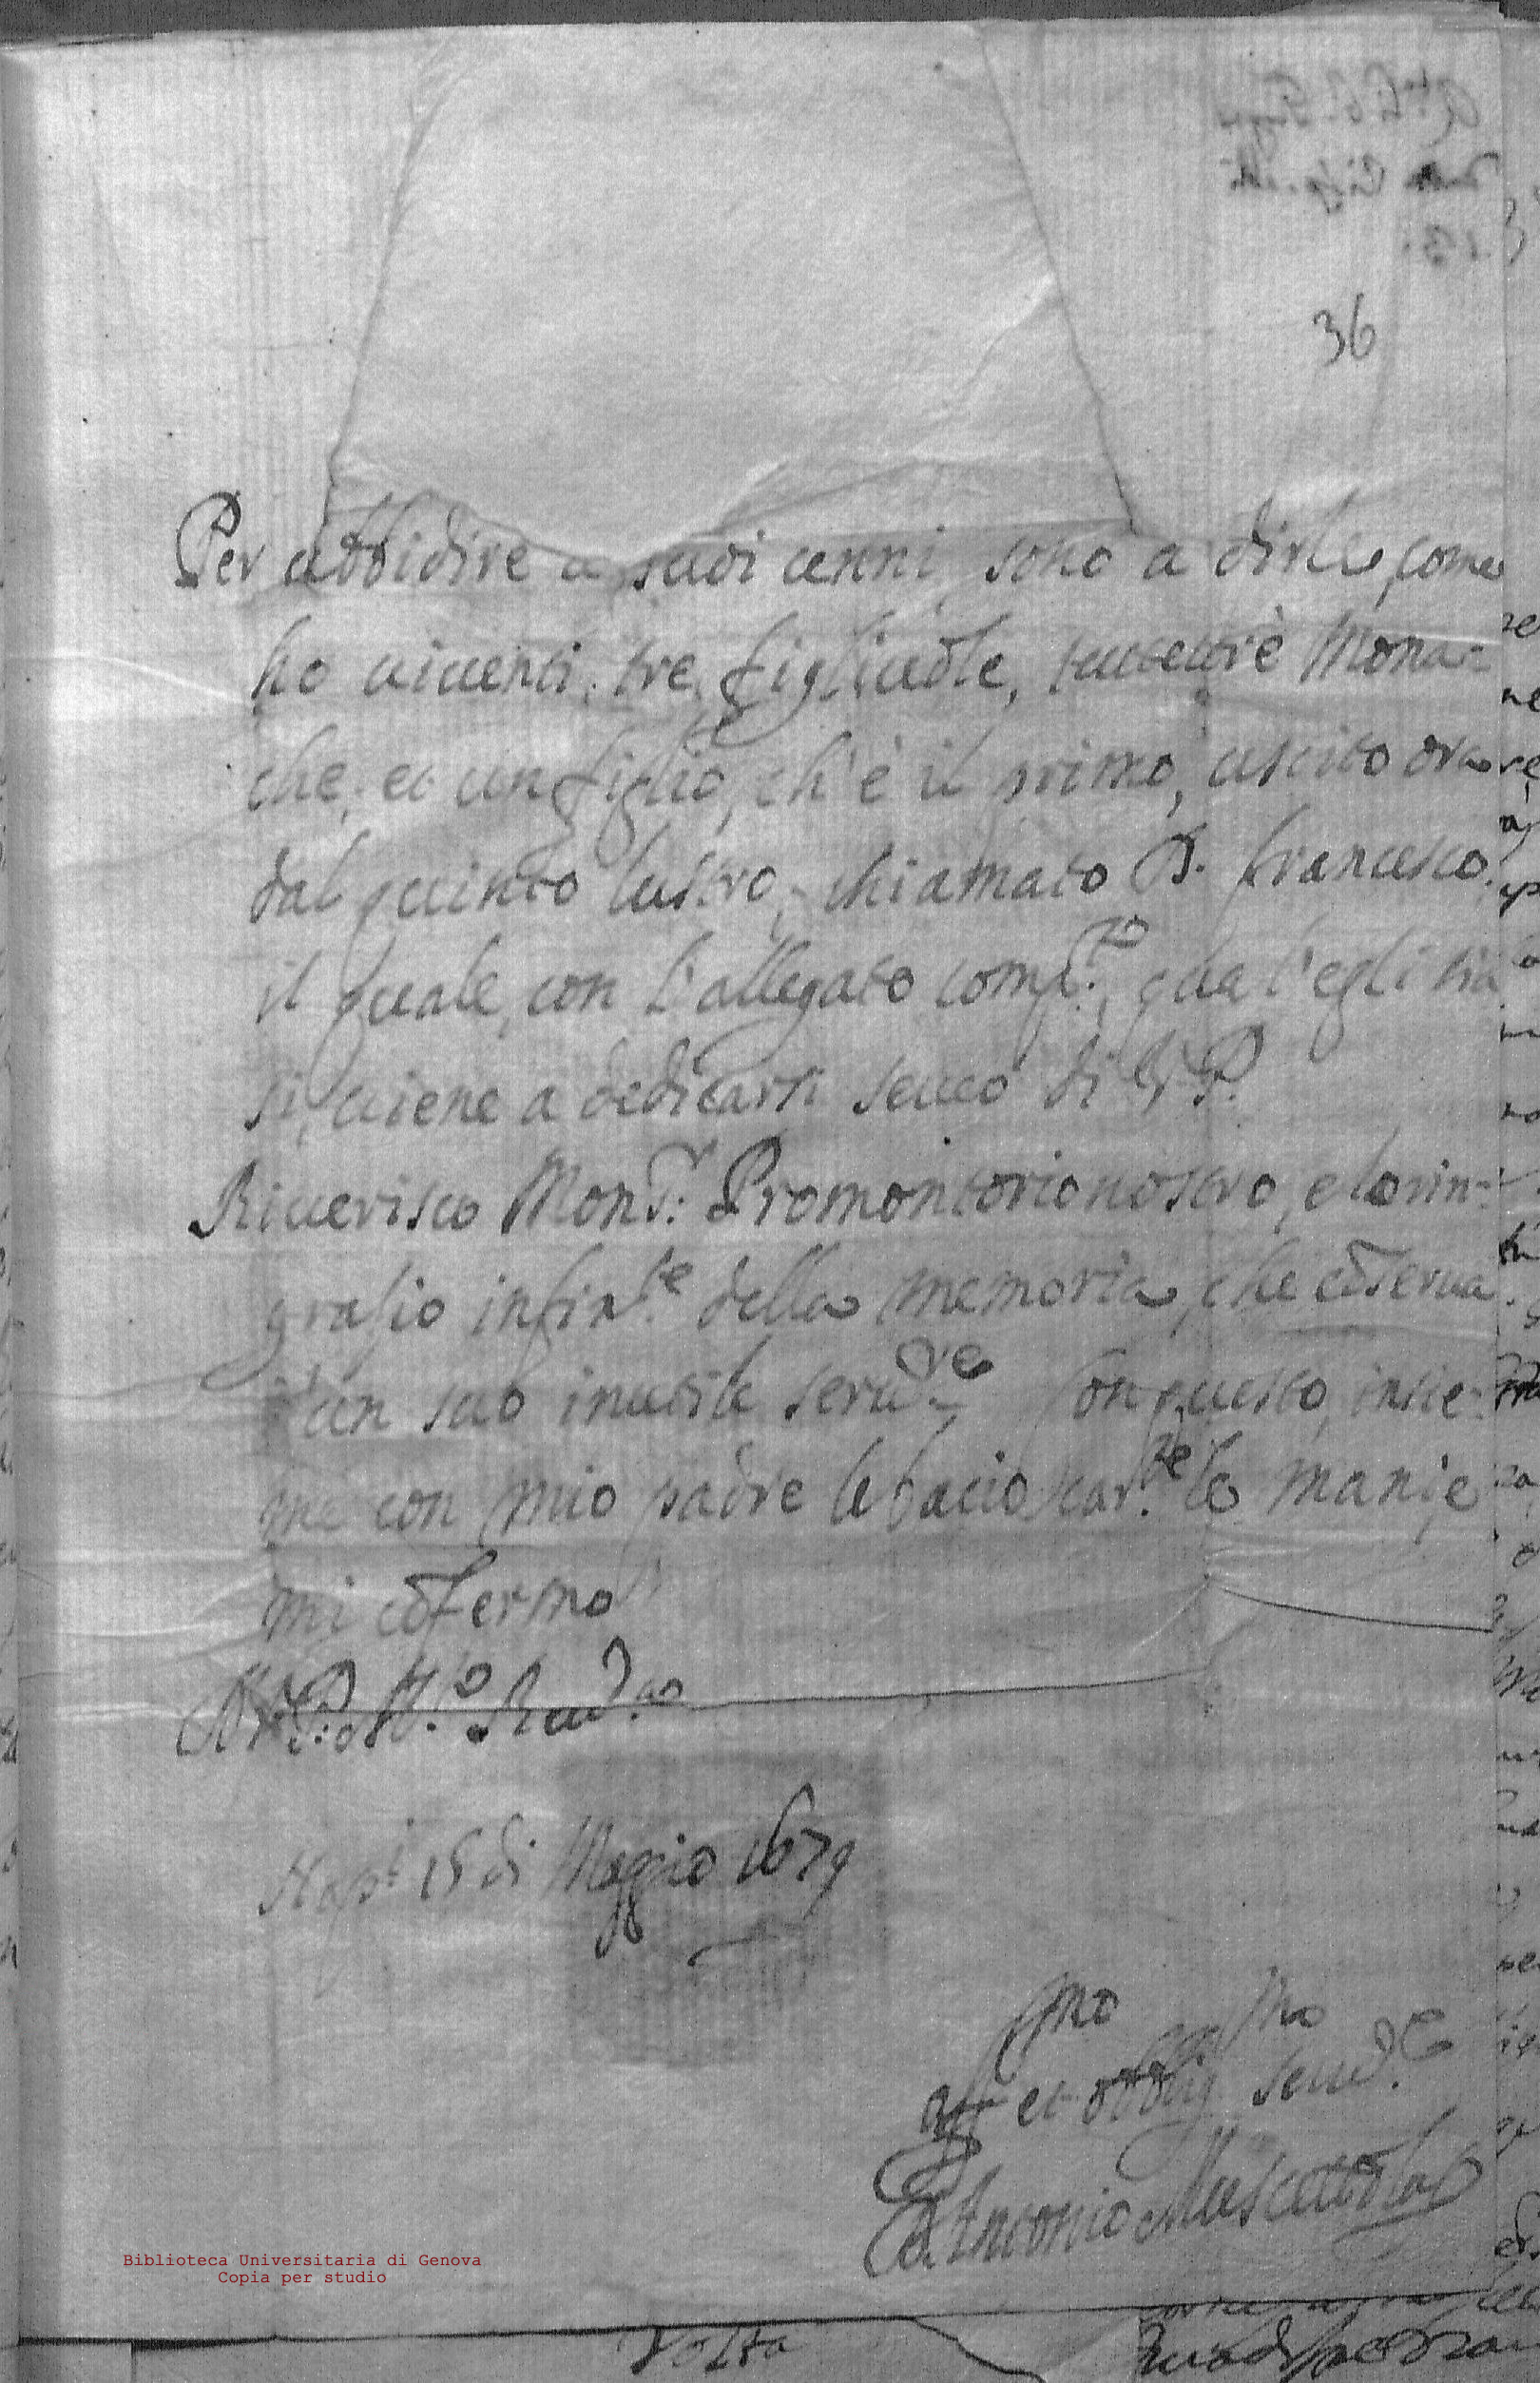 36
Per obbidire a suoi cenni sono a dirle, come
ho viventi tre figliuole, tutte tre Mona-
che, et un figlio, ch'è il primo, uscito ora
dal quinto lustro, chiamato D. Francesco,
il quale, con l'allegato comp.to, qual'egli sia
si, viene a dedicarsi servo di V. P.
Riverisco Mons.r Promontorio nostro, e lo rin-
grasio infin.te della memoria, che cōserva
d'un suo inutile serv.re Con questo, insie-
me con mio padre le bacio car.te le mani, e
mi cōfermo
P. M.to Rev.do
Nap.i 15 di Maggio 1679
aff.mo et obblig.mo serv.re
D. Antonio Muscettola
Volta
Biblioteca Universitaria di Genova
Copia per studio